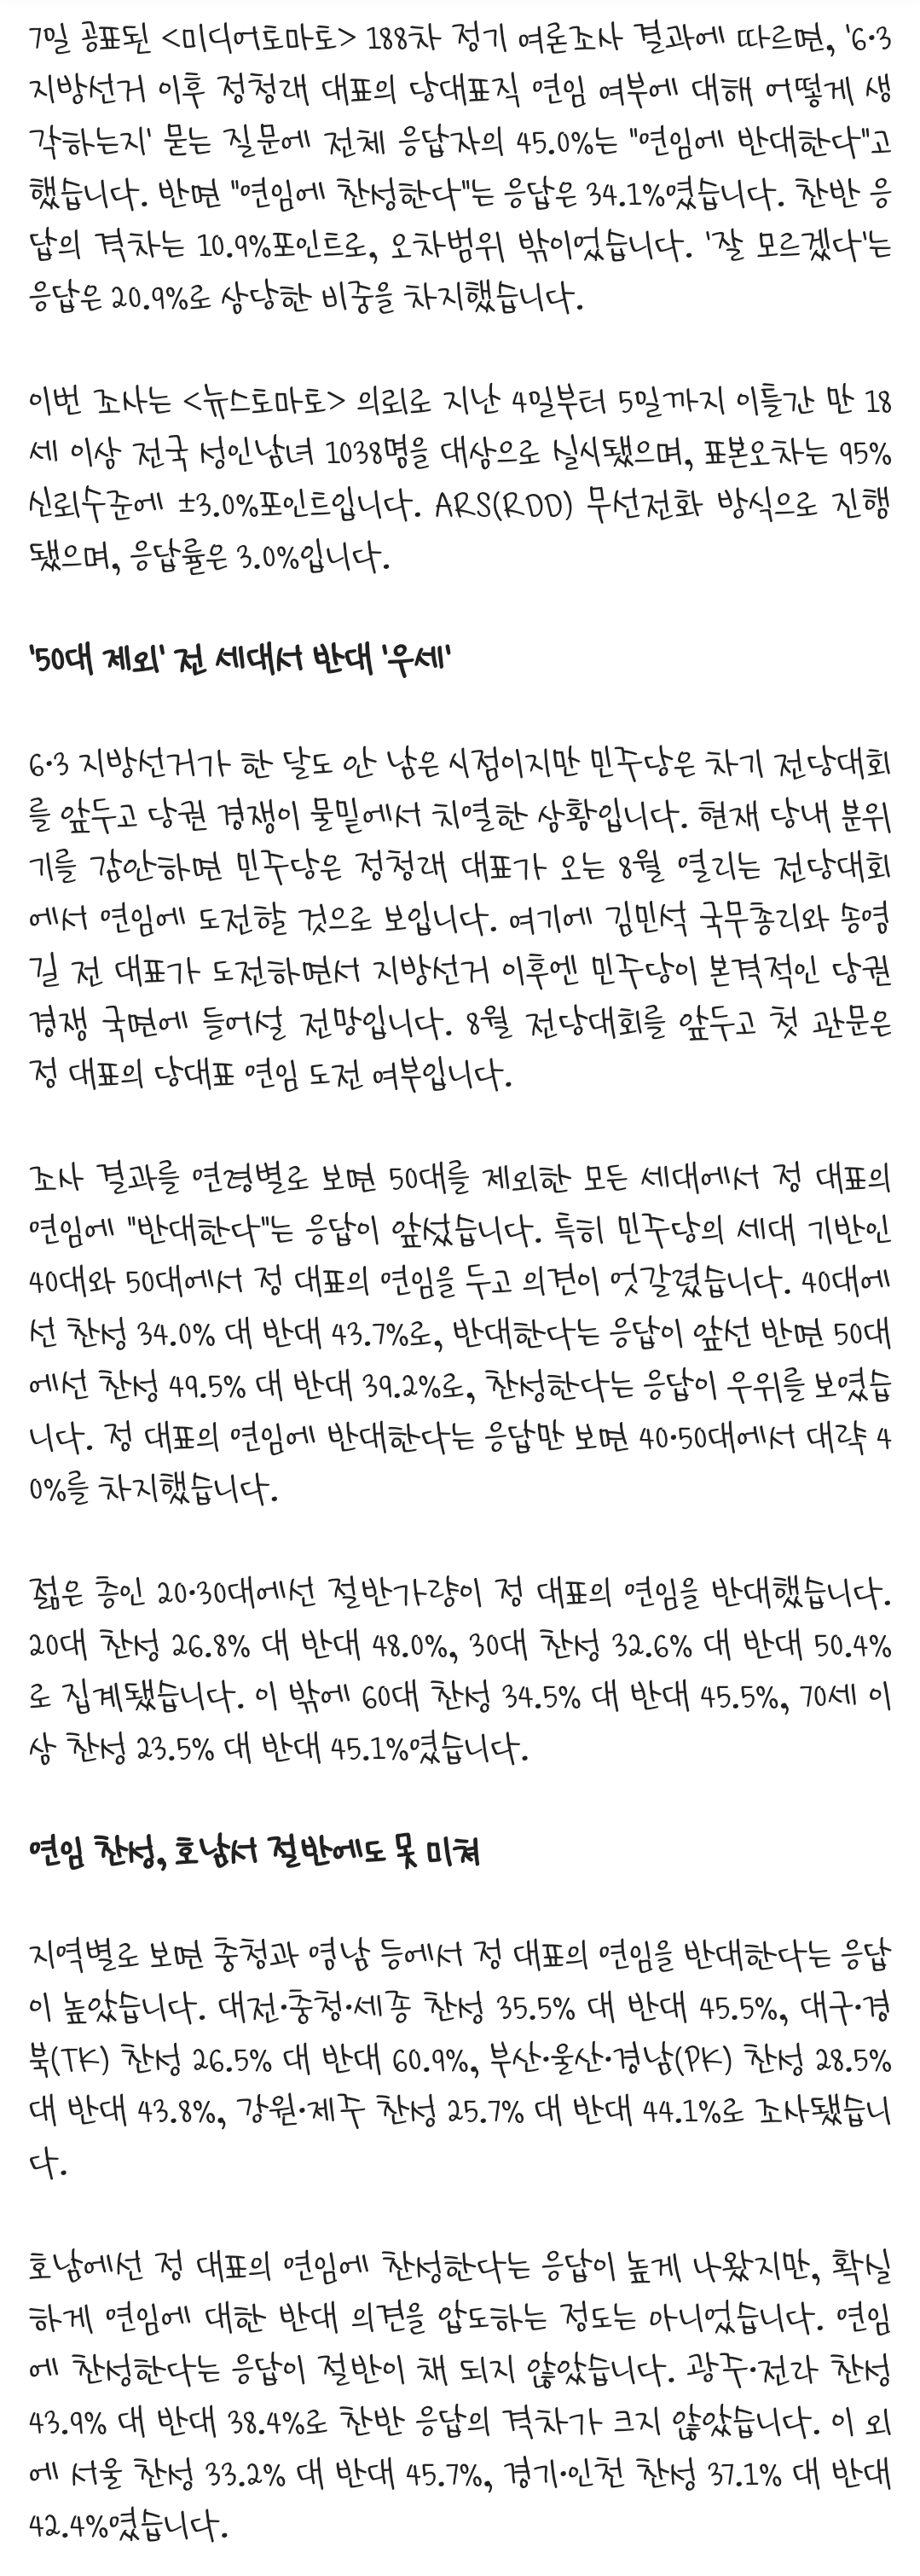 7일 공표된 <미디어토마토> 188차 정기 여론조사 결과에 따르면, '6·3
지방선거 이후 정청래 대표의 당대표직 연임 여부에 대해 어떻게 생
각하는지' 묻는 질문에 전체 응답자의 45.0%는 "연임에 반대한다"고
했습니다. 반면 "연임에 찬성한다"는 응답은 34.1%였습니다. 찬반 응
답의 격차는 10.9%포인트로, 오차범위 밖이었습니다. '잘 모르겠다'는
응답은 20.9%로 상당한 비중을 차지했습니다.
이번 조사는 <뉴스토마토> 의뢰로 지난 4일부터 5일까지 이틀간 만 18
세 이상 전국 성인남녀 1038명을 대상으로 실시됐으며, 표본오차는 95%
신뢰수준에 ±3.0%포인트입니다. ARS(RDD) 무선전화 방식으로 진행
됐으며, 응답률은 3.0%입니다.
'50대 제외' 전 세대서 반대 '우세'
6·3 지방선거가 한 달도 안 남은 시점이지만 민주당은 차기 전당대회
를 앞두고 당권 경쟁이 물밑에서 치열한 상황입니다. 현재 당내 분위
기를 감안하면 민주당은 정청래 대표가 오는 8월 열리는 전당대회
에서 연임에 도전할 것으로 보입니다. 여기에 김민석 국무총리와 송영
길 전 대표가 도전하면서 지방선거 이후엔 민주당이 본격적인 당권
경쟁 국면에 들어설 전망입니다. 8월 전당대회를 앞두고 첫 관문은
정 대표의 당대표 연임 도전 여부입니다.
조사 결과를 연령별로 보면 50대를 제외한 모든 세대에서 정 대표의
연임에 "반대한다"는 응답이 앞섰습니다. 특히 민주당의 세대 기반인
40대와 50대에서 정 대표의 연임을 두고 의견이 엇갈렸습니다. 40대에
선 찬성 34.0% 대 반대 43.7%로, 반대한다는 응답이 앞선 반면 50대
에선 찬성 49.5% 대 반대 39.2%로, 찬성한다는 응답이 우위를 보였습
니다. 정 대표의 연임에 반대한다는 응답만 보면 40·50대에서 대략 4
0%를 차지했습니다.
젊은 층인 20·30대에선 절반가량이 정 대표의 연임을 반대했습니다.
20대 찬성 26.8% 대 반대 48.0%, 30대 찬성 32.6% 대 반대 50.4%
로 집계됐습니다. 이 밖에 60대 찬성 34.5% 대 반대 45.5%, 70세 이
상 찬성 23.5% 대 반대 45.1%였습니다.
연임 찬성, 호남서 절반에도 못 미쳐
지역별로 보면 충청과 영남 등에서 정 대표의 연임을 반대한다는 응답
이 높았습니다. 대전·충청·세종 찬성 35.5% 대 반대 45.5%, 대구·경
북(TK) 찬성 26.5% 대 반대 60.9%, 부산·울산·경남(PK) 찬성 28.5%
대 반대 43.8%, 강원·제주 찬성 25.7% 대 반대 44.1%로 조사됐습니
다.
호남에선 정 대표의 연임에 찬성한다는 응답이 높게 나왔지만, 확실
하게 연임에 대한 반대 의견을 압도하는 정도는 아니었습니다. 연임
에 찬성한다는 응답이 절반이 채 되지 않았습니다. 광주·전라 찬성
43.9% 대 반대 38.4%로 찬반 응답의 격차가 크지 않았습니다. 이 외
에 서울 찬성 33.2% 대 반대 45.7%, 경기·인천 찬성 37.1% 대 반대
42.4%였습니다.